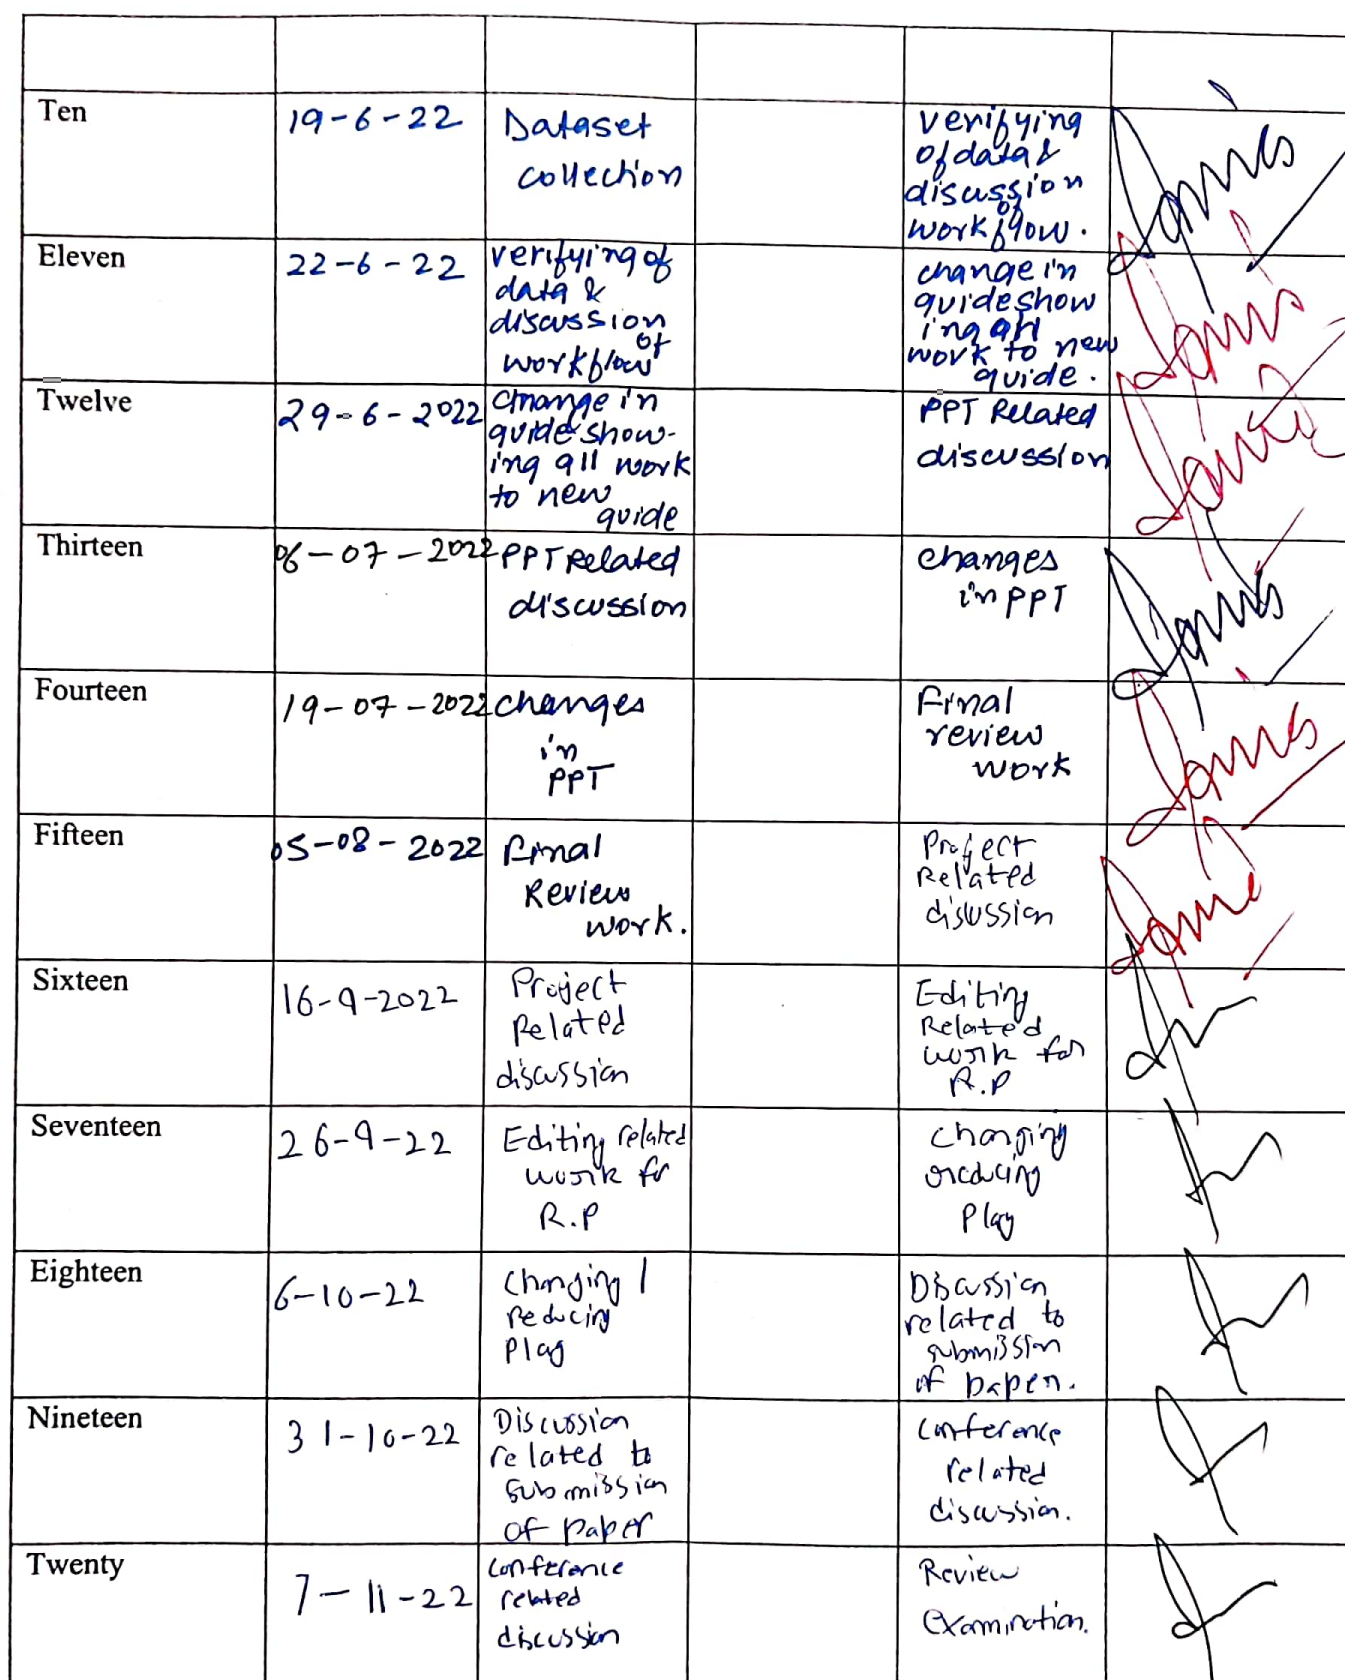 Ten
19-6-22
Dataset
collection
verifying
of data &
discussion
of
workflow.
Eleven
22-6-22
verifying of
data &
discussion
of
workflow
change in
guide show
ing all
work to new
guide.
Twelve
29-6-2022
change in
guide show-
ing all work
to new
guide
PPT Related
discussion
Thirteen
06-07-2022
PPT Related
discussion
changes
in PPT
Fourteen
19-07-2022
changes
in
PPT
Final
review
work
Fifteen
05-08-2022
Final
Review
work.
Project
Related
discussion
Sixteen
16-9-2022
Project
Related
discussion
Editing
Related
work for
R.P
Seventeen
26-9-22
Editing related
work for
R.P
Changing
reducing
Plag
Eighteen
6-10-22
Changing /
reducing
Plag
Discussion
related to
submission
of paper.
Nineteen
31-10-22
Discussion
related to
submission
of paper
Conference
related
discussion.
Twenty
7-11-22
Conference
related
discussion
Review
Examination.